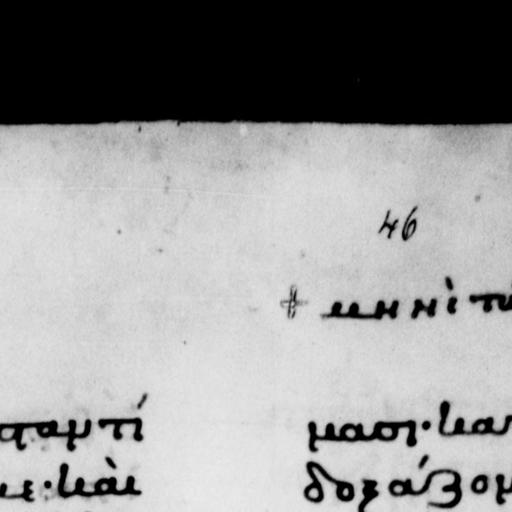 46
+ μηνὶ τῶ
παντί
με· καὶ
μασι· και
δοξάζομ